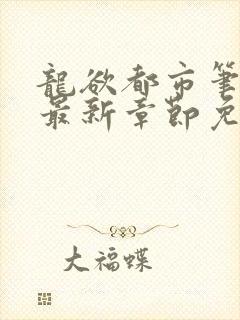 龍欲都市筆
最新章節免
大福蝶